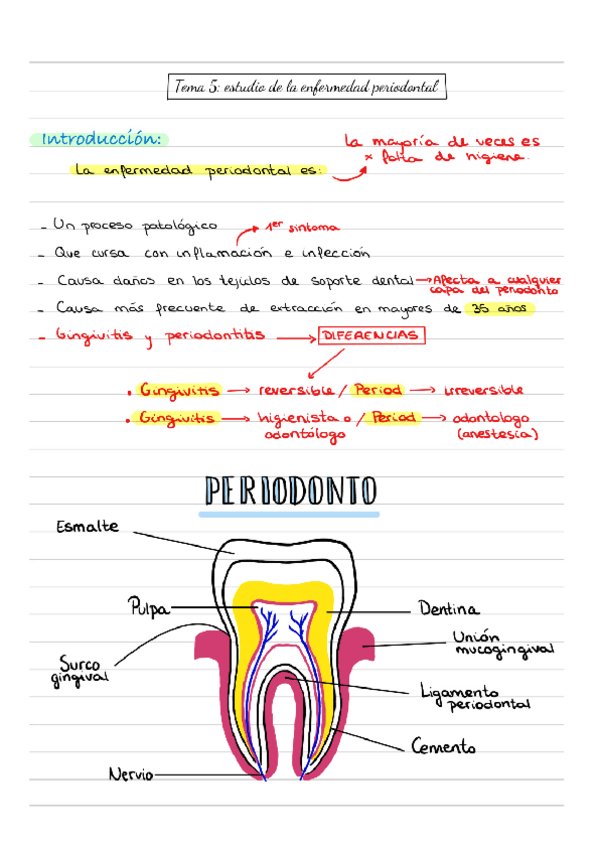 Tema 5: estudio de la enfermedad periodontal
Introducción:
La mayoría de veces es
x falta de higiene.
La enfermedad periodontal es:
- Un proceso patológico
1er síntoma
- Que cursa con inflamación e infección
- Causa daños en los tejidos de soporte dental → Afecta a cualquier
capa del periodonto
- Causa más frecuente de extracción en mayores de 35 años
- Gingivitis y periodontitis → DIFERENCIAS
• Gingivitis → reversible / Period → irreversible
• Gingivitis → higienista o / Period → odontologo
odontólogo (anestesia)
PERIODONTO
Esmalte
Pulpa
Dentina
Unión
mucogingival
Surco
gingival
Ligamento
periodontal
Cemento
Nervio